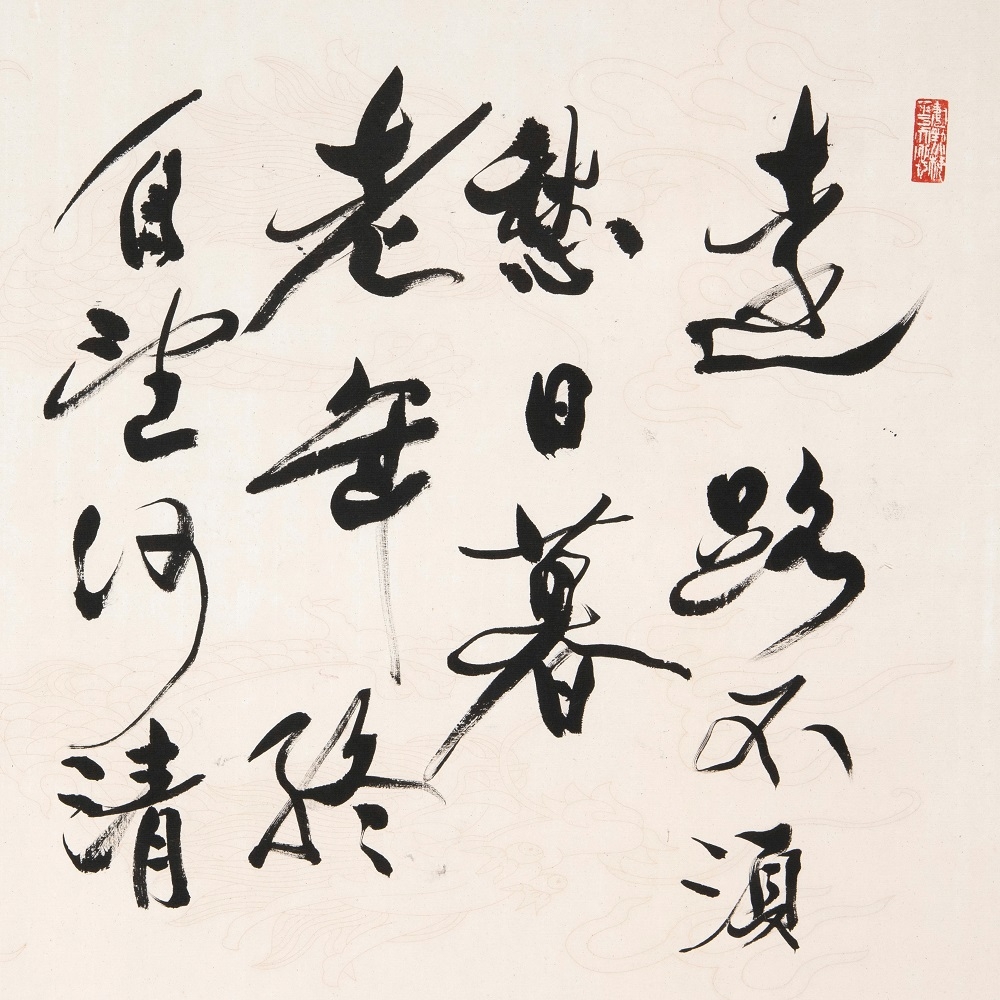 遠路不須
愁日暮
老年終
自望河清